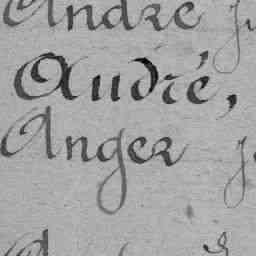 André
André,
Anger